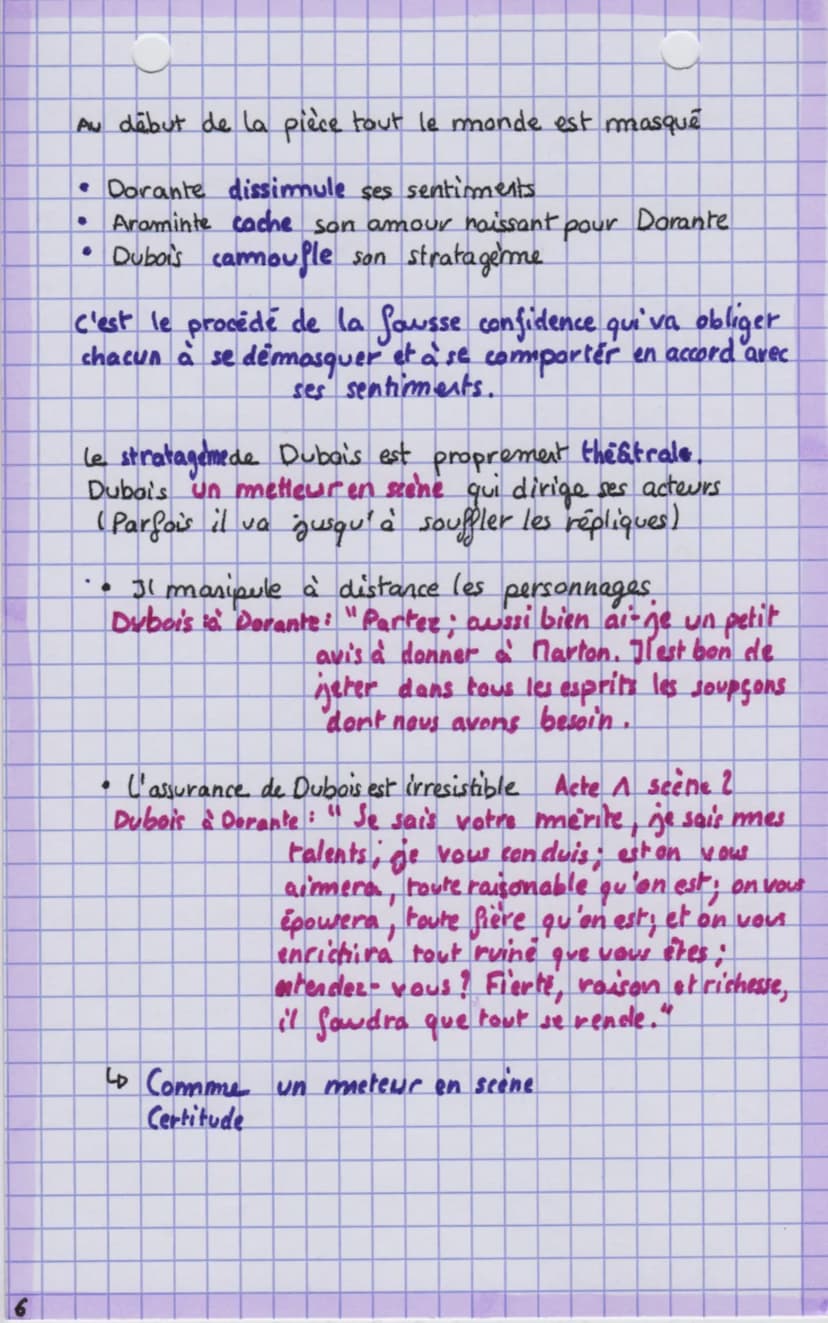 Au début de la pièce tout le monde est masqué
• Dorante dissimule ses sentiments
• Araminte cache son amour naissant pour Dorante
• Dubois camoufle son stratagème
C'est le procédé de la fausse confidence qui va obliger
chacun à se démasquer et à se comporter en accord avec
ses sentiments.
Le stratagème de Dubois est proprement théâtrale.
Dubois un metteur en scène qui dirige ses acteurs
(Parfois il va jusqu'à souffler les répliques)
• Il manipule à distance les personnages
Dubois à Dorante : "Partez ; aussi bien ai-je un petit
avis à donner à Marton. Il est bon de
jeter dans tous les esprits les soupçons
dont nous avons besoin.
• L'assurance de Dubois est irresistible Acte 1 scène 2
Dubois à Dorante : "Je sais votre mérite, je sais mes
talents ; je vous conduis ; et on vous
aimera, toute raisonable qu'on est ; on vous
épousera, toute fière qu'on est ; et on vous
enrichira tout ruiné que vous êtes ;
entendez-vous ? Fierté, raison et richesse,
il faudra que tout se rende."
↳ Comme un meteur en scène
Certitude
6